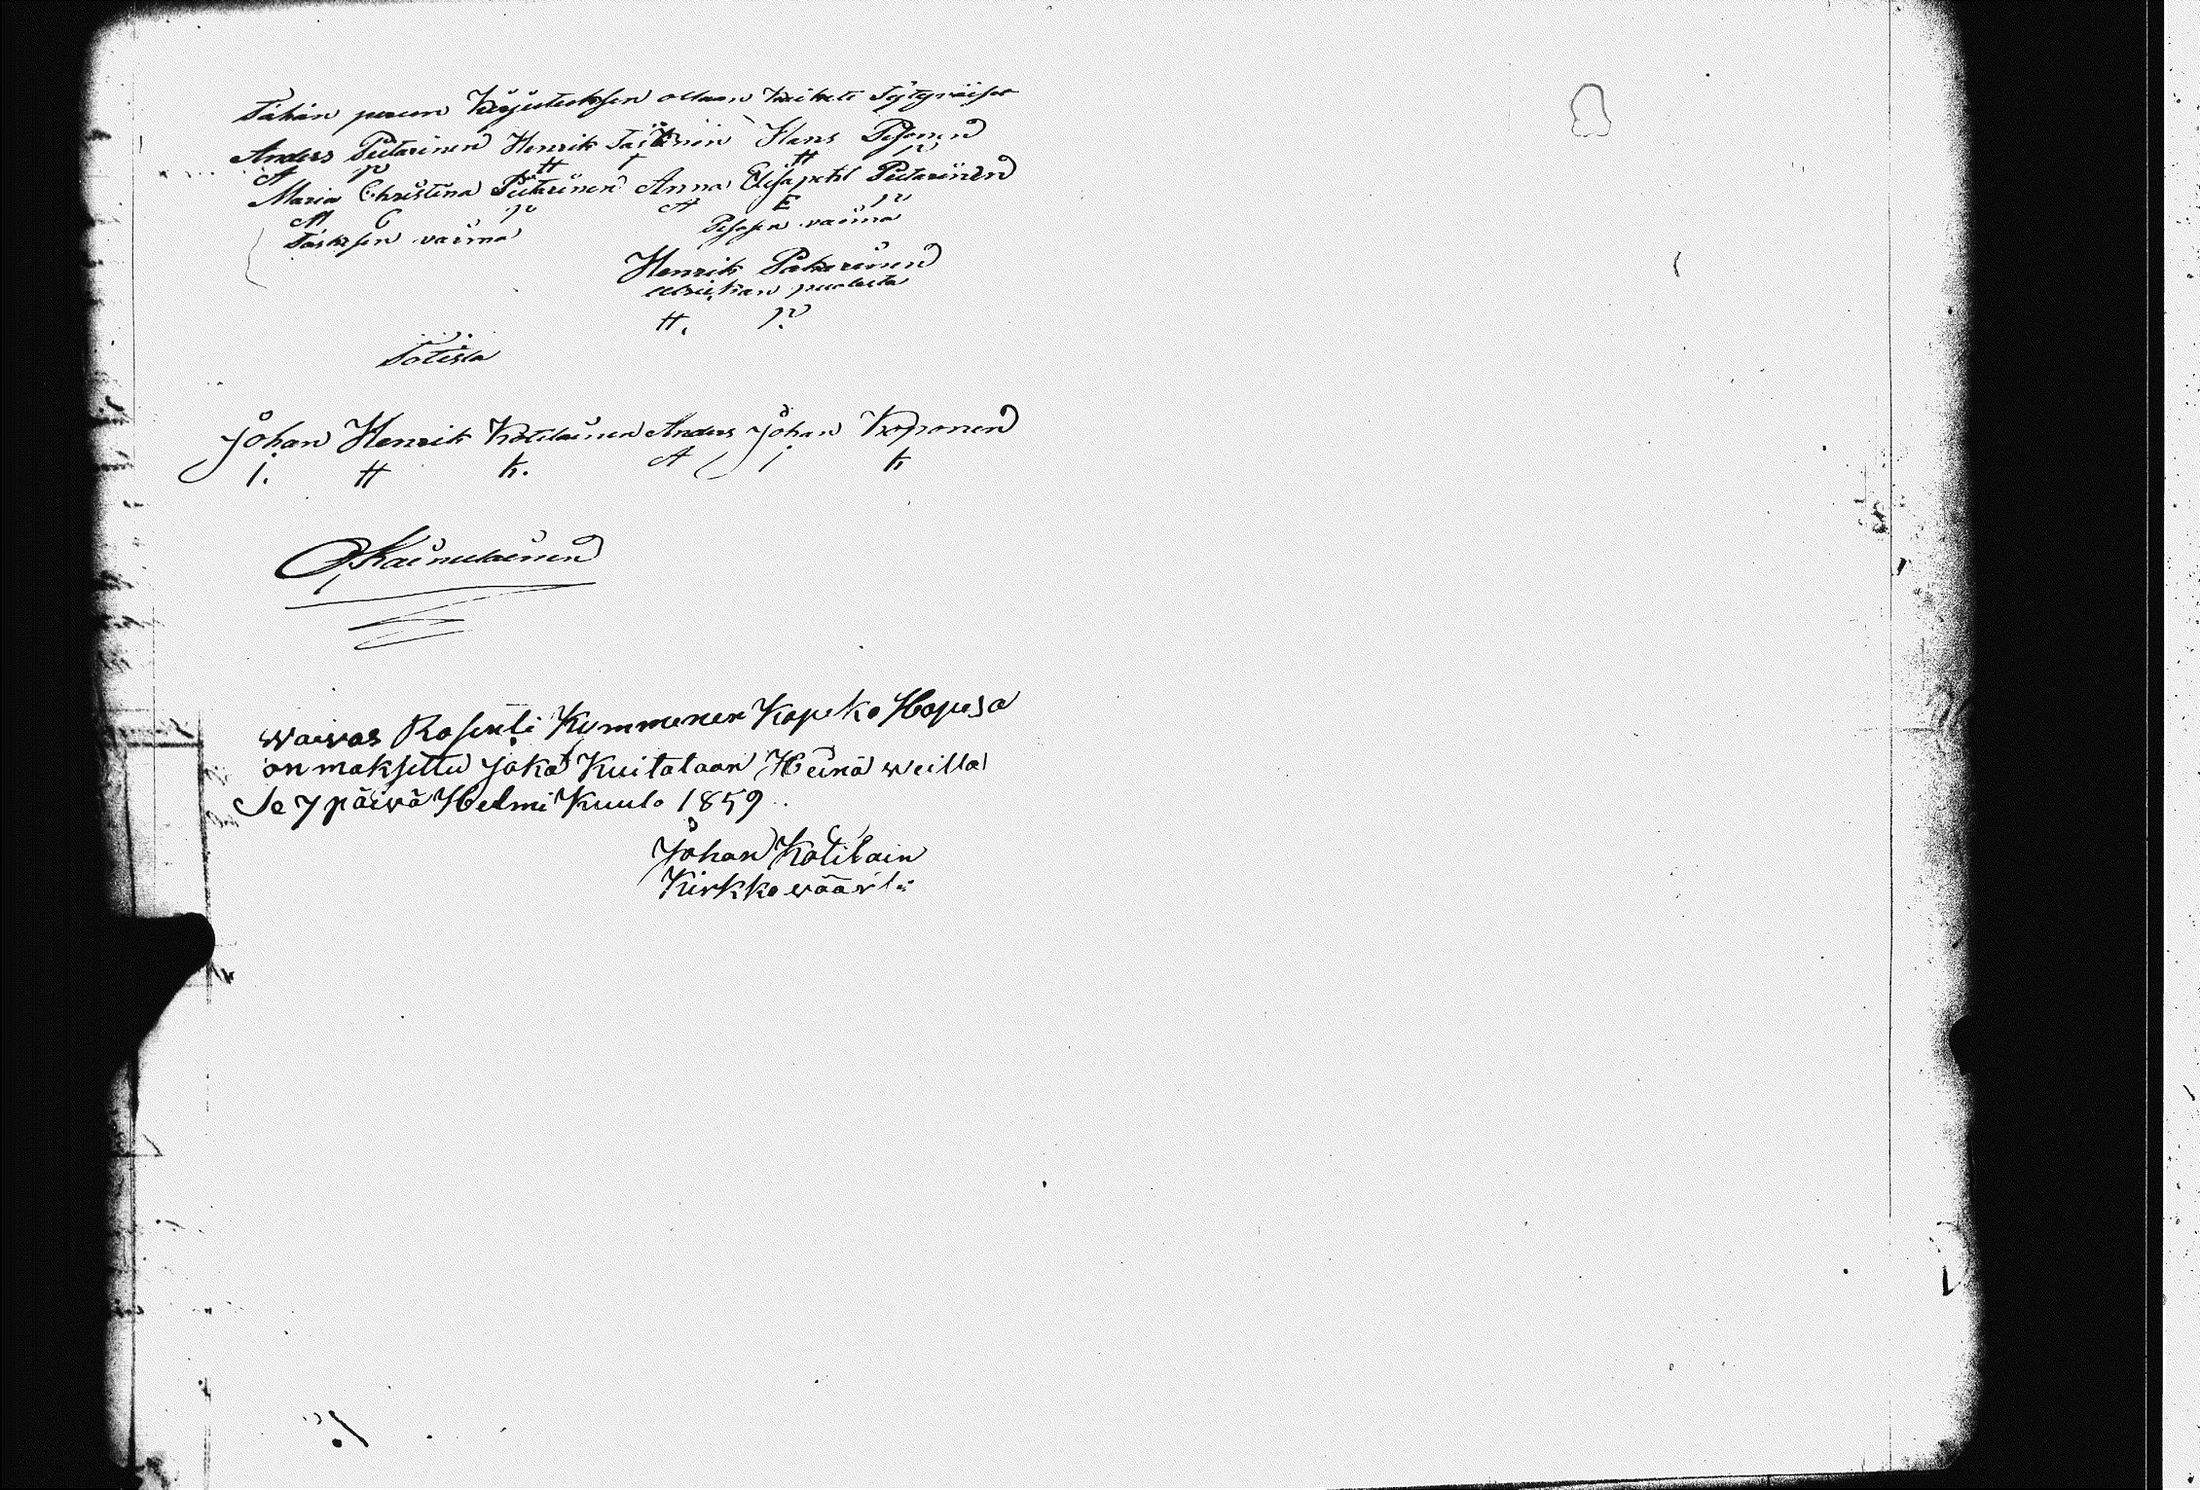 Tähän perun Kirjutuksen ollaan kaikki Tytyväiset
Anders Pitarinen Henrik Taskinin Hans Pesonen
A P H T H P
Maria Christina Pitarinen Anna Elisapetil Pitarinen
M C P A E P
Taskisen vaimo Pesosen vaimo
Henrik Pakarinen
Ulriikan puolesta
H. P.
Totista
Johan Henrik Kotilainen Anders Johan Kroponen
I. H K. A I K
Kainulainen
Waivas Rosenti Kymmenen Kopeko Hopesa
on maksettu joka Kuitataan Heinä weilla
Se 7 päivä Helmi Kuulo 1859
Johan Kotilain
Kirkkoväärti